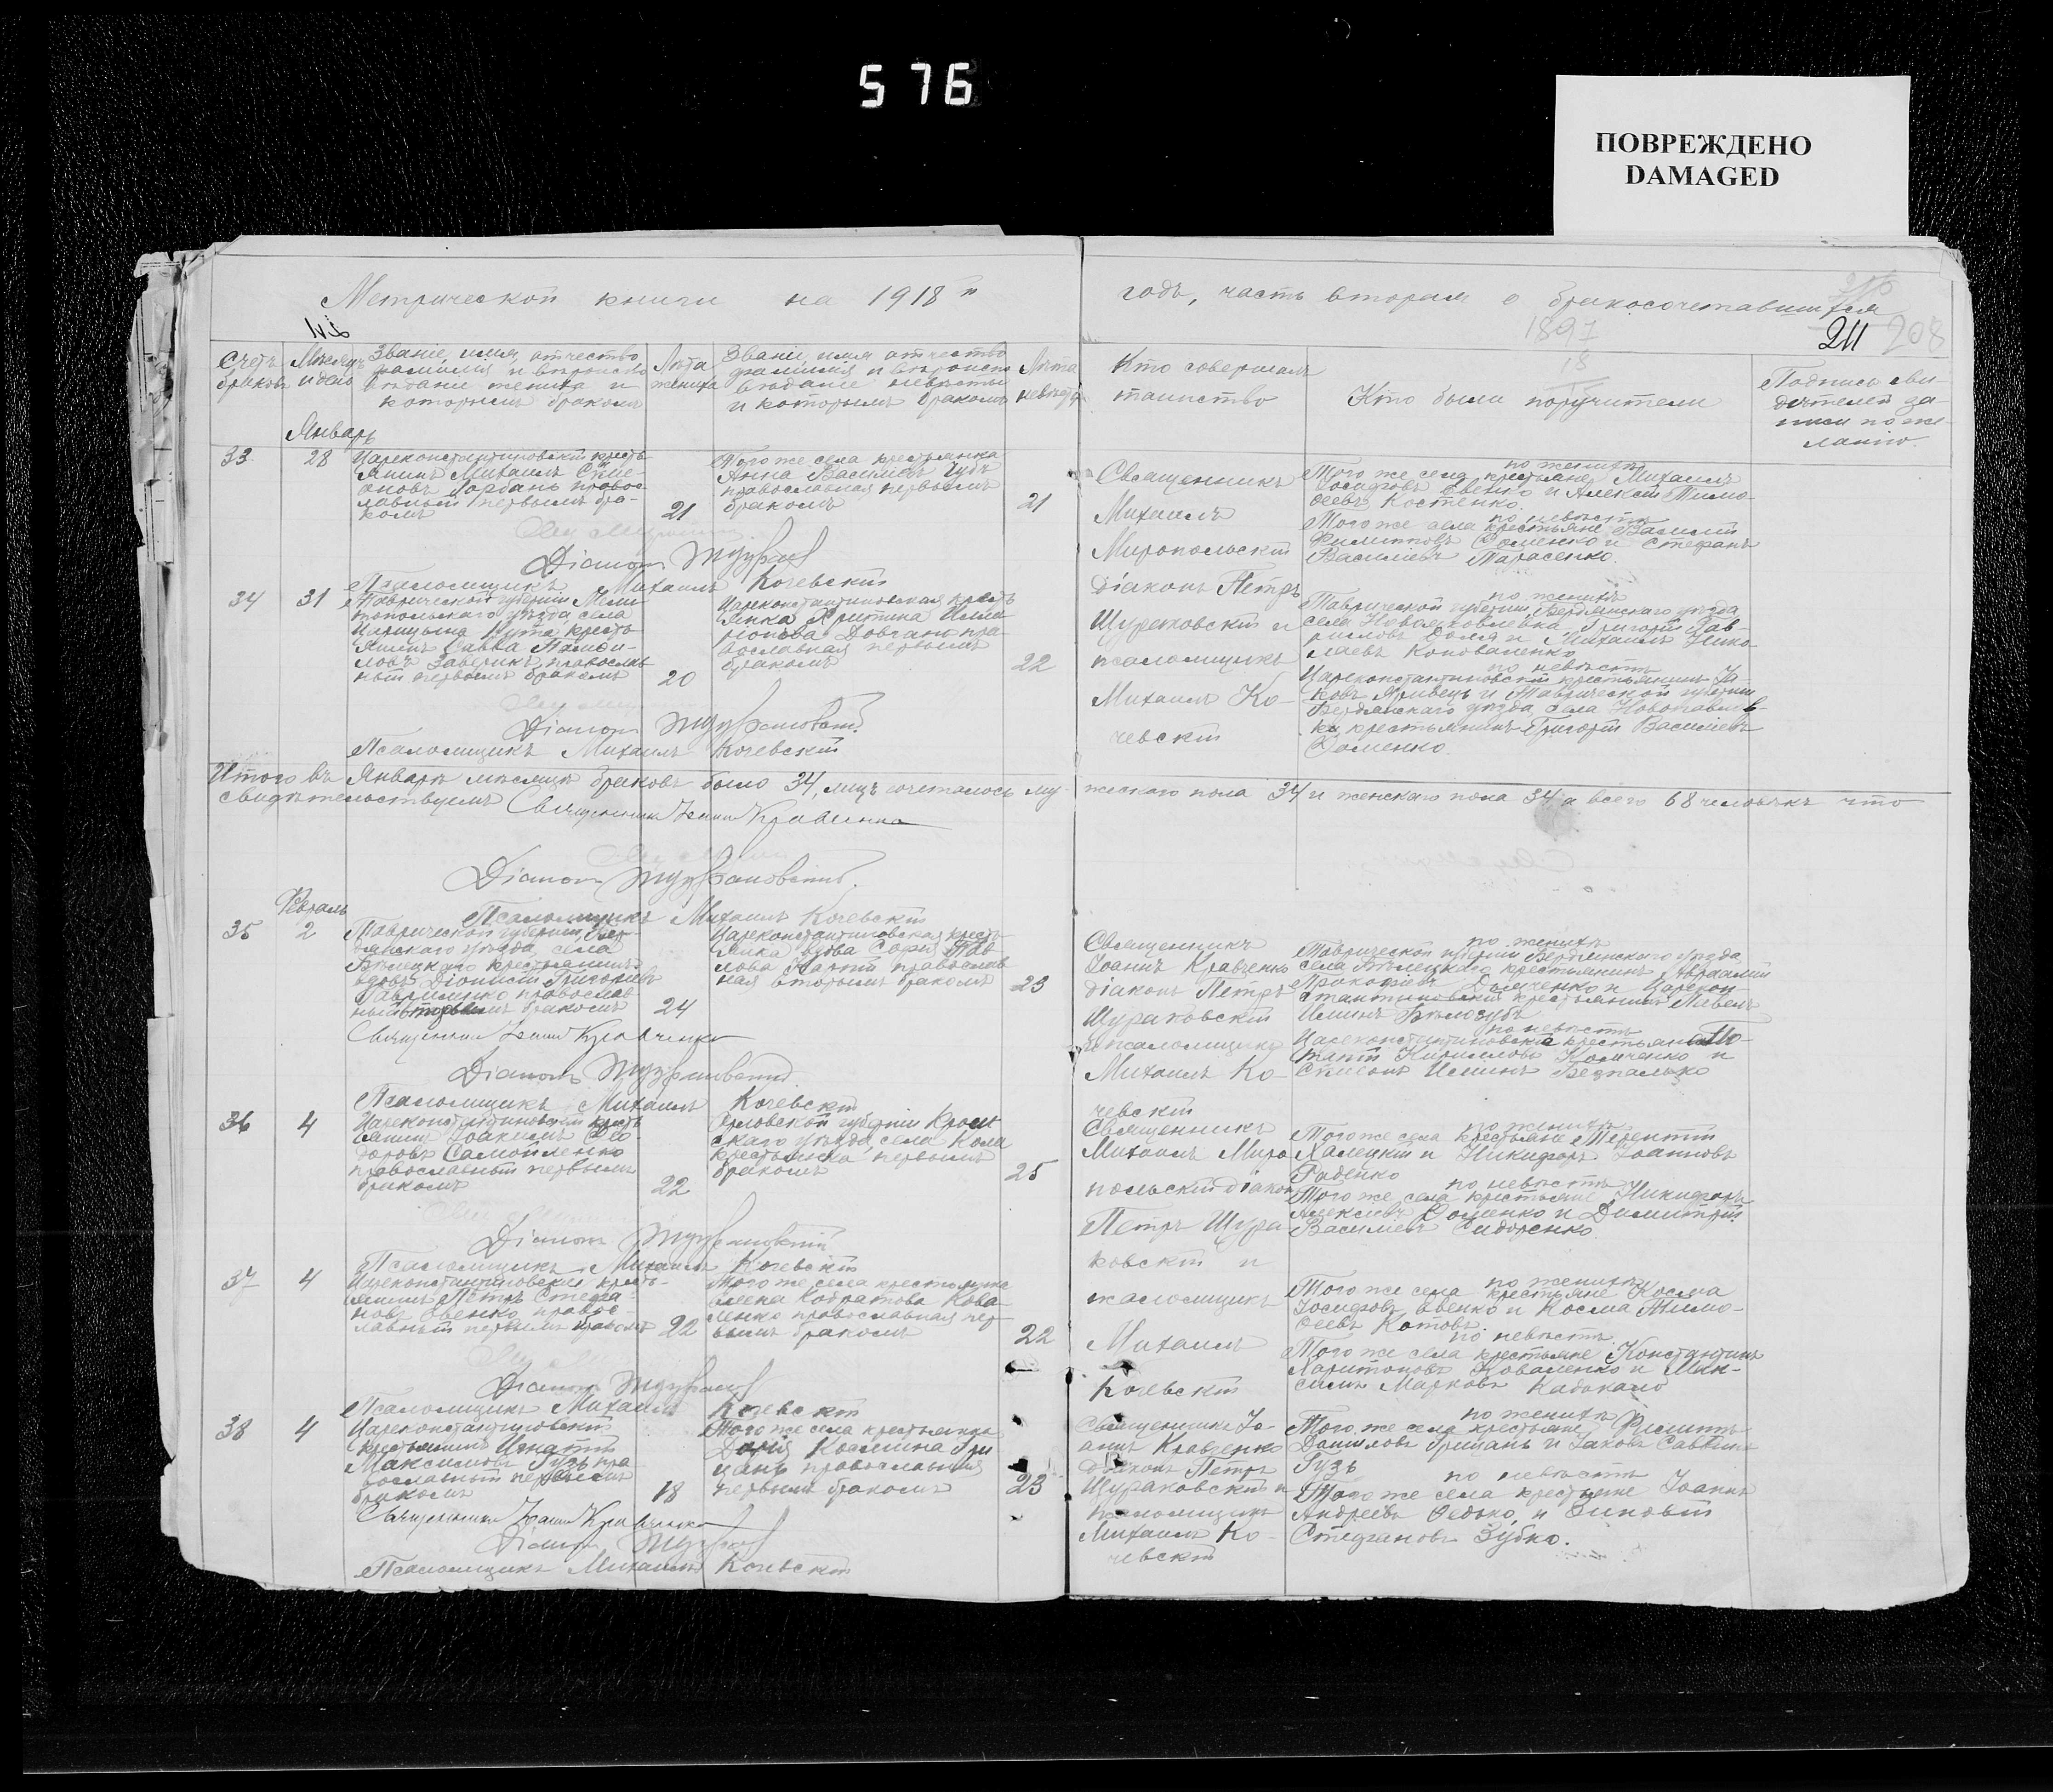 576
ПОВРЕЖДЕНО
DAMAGED
Метрической книги на 1918 й
годъ, часть вторая о бракосочетавшихся
1897
18
211 208
Счетъ браковъ
Мѣсяцъ и день
Званіе, имя, отчество
фамилія и вѣроиспо
вѣданіе жениха и
которымъ бракомъ
Лѣта
жениха
Званіе, имя отчество
фамилія и вѣроиспо
вѣданіе невѣсты
и которымъ бракомъ
Лѣта
невѣсты
Кто совершалъ
таинство
Кто были поручители
Подпись сви-
дѣтелей за-
писи по же-
ланію.
Январь
33
28
Цареконстантиновскій кресть
янинъ Михаилъ Симе-
оновъ Горбань правос-
лавный первымъ бра-
комъ
21
Того же села крестьянка
Анна Васильева Чубъ
православная первымъ
бракомъ
21
Священникъ
Михаилъ
Миропольскій
по женихѣ
Того же села крестьяне Михаилъ
Іосифовъ Овенко и Алексій Тимо-
ѳеевъ Костенко.
по невѣстѣ
Того же села крестьяне Василій
Филипповъ Фоменко и Стефанъ
Васильевъ Тарасенко.
Діаконъ
Псаломщикъ Михаилъ Кочевскій
34
31
Таврической губерніи Мели
топольскаго уѣзда села
Царицына Кута кресть
янинъ Савва Памфи-
ловъ Заверикъ православ
ный первымъ бракомъ
20
Цареконстантиновская кресть
янка Христина Илла
ріонова Довгань пра-
вославная первымъ
бракомъ
22
Діаконъ Петръ
Щураковскій и
псаломщикъ
Михаилъ Ко-
чевскій
по женихѣ
Таврической губерніи Бердянскаго уѣзда
села Новояковлевка Григорій Гав-
риловъ Доля и Михаилъ Нико-
лаевъ Коноваленко
по невѣстѣ
Цареконстантиновскій крестьянинъ Іа-
ковъ Яривецъ и Таврической губерніи
Бердянскаго уѣзда села Новопавлов-
ки крестьянинъ Григорій Васильевъ
Фоменко.
Діаконъ Щураковскій
Псаломщикъ Михаилъ Кочевскій
Итого въ Январѣ мѣсяцѣ браковъ было 34, лицъ сочеталось му-
жескаго пола 34 и женскаго пола 34 а всего 68 человѣкъ что
свидѣтельствуемъ Священникъ Іоаннъ Кравченко
Діаконъ Щураковскій
Псаломщикъ Михаилъ Кочевскій
Февраль
35
2
Таврической губерніи, Бер-
дянскаго уѣзда, села
Бѣлецкаго крестьянинъ
вдовъ Діонисій Григорьевъ
Гавриленко православ
ный вторымъ бракомъ
24
Цареконстантиновская кресть-
янка вдова Софія Пав
лова православ
ная вторымъ бракомъ
23
Священникъ
Іоаннъ Кравченко
діаконъ Петръ
Щураковскій
и псаломщикъ
Михаилъ Ко-
чевскій
по женихѣ
Таврической губерніи Бердянскаго уѣзда
села Бѣлецкаго крестьянинъ Авраамій
Прокофьевъ Домченко и Царекон-
стантиновскій крестьянинъ Павелъ
Ильинъ Бѣлозубъ
по невѣстѣ
Цареконстантиновскіе крестьяне По-
тапій Кирилловъ Коломченко и
Симеонъ Ильинъ Безпалько
Священникъ Іоаннъ Кравченко
Діаконъ Щураковскій
Псаломщикъ Михаилъ Кочевскій
36
4
Цареконстантиновскій кресть
янинъ Іоакимъ Ѳео-
доровъ Самойленко
православный первымъ
бракомъ
22
Орловской губерніи Кром
скаго уѣзда, села
крестьянка первымъ
бракомъ
25
Священникъ
Михаилъ Миро
польскій діаконъ
Петръ Щура
ковскій и
по женихѣ
Того же села крестьяне Терентій
Халецкій и Никифоръ Іоанновъ
Раденко
по невѣстѣ
Того же села крестьяне Никифоръ
Алексѣевъ Фоменко и Димитрій
Васильевъ Сидоренко.
Діаконъ Щураковскій
Псаломщикъ Михаилъ Кочевскій
37
4
Цареконстантиновскій кресть-
янинъ Петръ Стефа-
новъ Овенко правос-
лавный первымъ бракомъ
22
Того же села крестьянка
Елена Кодратова Кова-
ленко православная пер
вымъ бракомъ
22
псаломщикъ
Михаилъ
Кочевскій
по женихѣ
Того же села крестьяне Косма
Іосифовъ Овенко и Косма Тимо-
ѳеевъ Котовъ.
по невѣстѣ
Того же села крестьяне Константинъ
Харитоновъ Коваленко и Мак-
симъ Марковъ
Діаконъ
Псаломщикъ Михаилъ Кочевскій
38
4
Цареконстантиновскій
крестьянинъ Игнатій
Максимовъ Гузь пра-
вославный первымъ
бракомъ
18
Того же села крестьянка
Дарія Космина Гри
цань православная
первымъ бракомъ
23
Священникъ Іо-
аннъ Кравченко
діаконъ Петръ
Щураковскій и
псаломщикъ
Михаилъ Ко-
чевскій
по женихѣ
Того же села крестьяне Филиппъ
Даниловъ Грицань и Іаковъ Саввинъ
Гузь
по невѣстѣ
Того же села крестьяне Іоаннъ
Андреевъ Ѳедько, и Зиновій
Стефановъ Зубко.
Священникъ Іоаннъ Кравченко
Діаконъ
Псаломщикъ Михаилъ Кочевскій